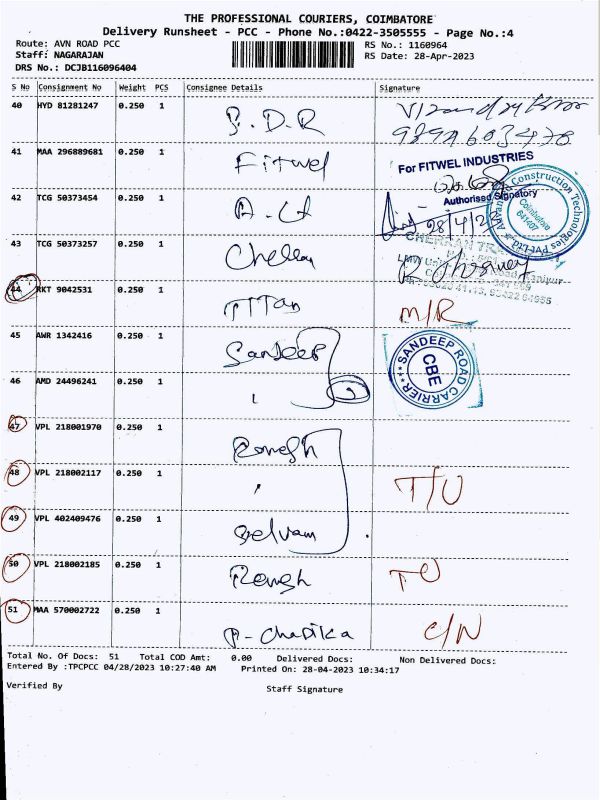 THE PROFESSIONAL COURIERS, COIMBATORE
Delivery Runsheet - PCC - Phone No.:0422-3505555 - Page No.:4
Route: AVN ROAD PCC
Staff: NAGARAJAN
DRS No.: DCJB116096404
RS No.: 1160964
RS Date: 28-Apr-2023
S No Consignment No Weight PCS Consignee Details Signature
40 HYD 81281247 0.250 1
41 MAA 296889681 0.250 1
Fitwel
For FITWEL INDUSTRIES
Authorised Signatory
42 TCG 50373454 0.250 1
28/4/23
Construction Technologies Pvt Ltd
Coimbatore
641407
43 TCG 50373257 0.250 1
44 RKT 9042531 0.250 1
TITan
M/R
45 AWR 1342416 0.250 1
Sandeep
SANDEEP ROAD CARRIER
CBE
46 AMD 24496241 0.250 1
47 VPL 218001970 0.250 1
48 VPL 218002117 0.250 1
T/U
49 VPL 402409476 0.250 1
Selvam
50 VPL 218002185 0.250 1
51 MAA 570002722 0.250 1
C/N
Total No. Of Docs: 51 Total COD Amt: 0.00 Delivered Docs: Non Delivered Docs:
Entered By :TPCPCC 04/28/2023 10:27:40 AM Printed On: 28-04-2023 10:34:17
Verified By Staff Signature